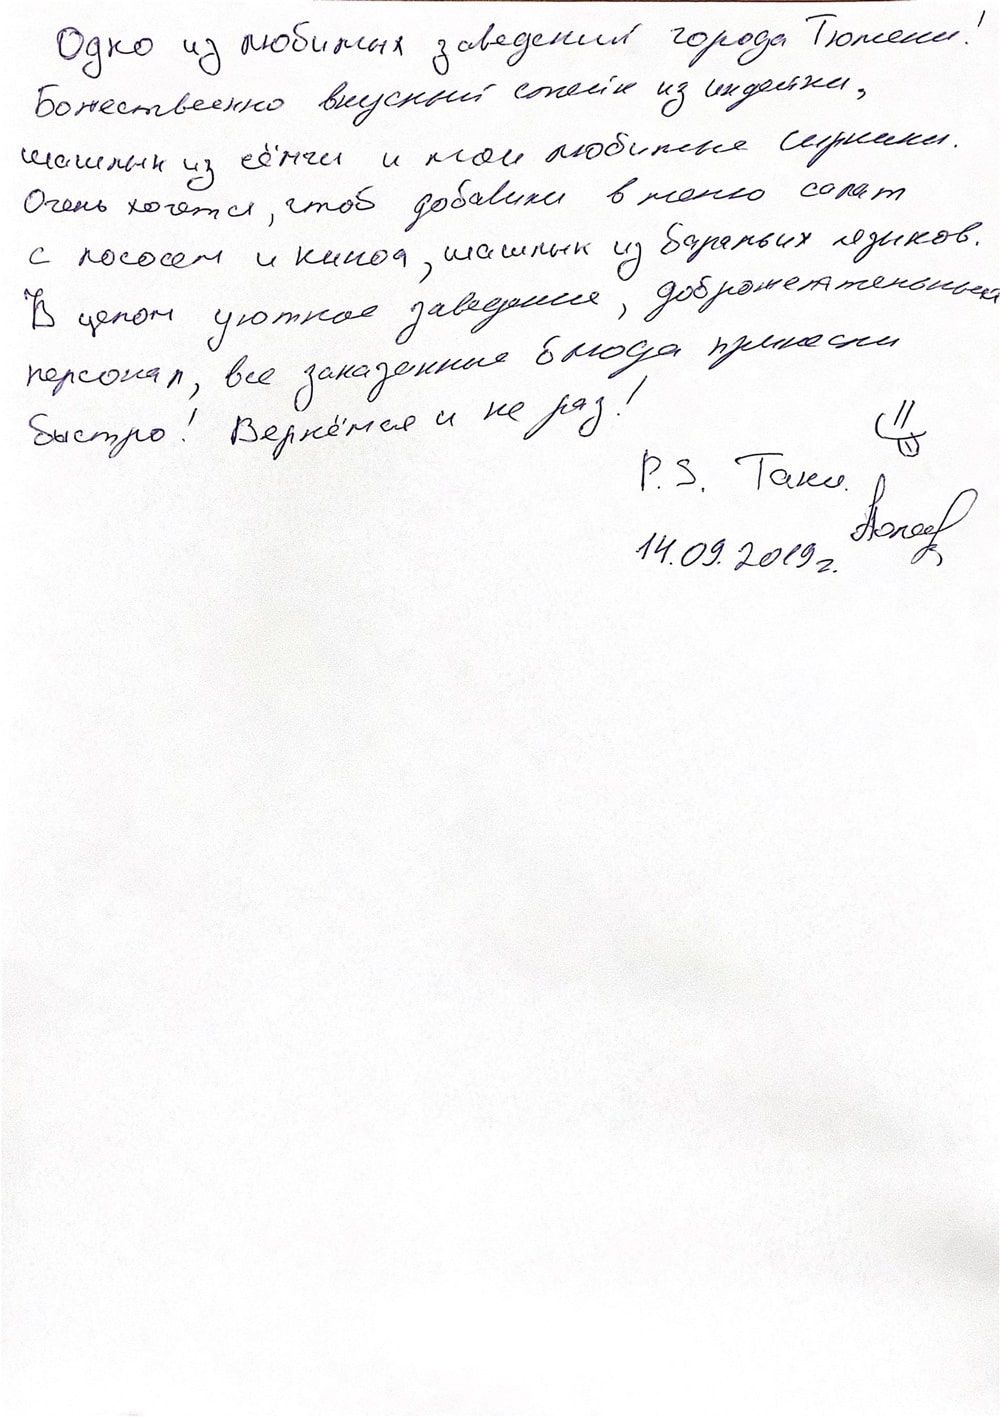 Одно из любимых заведений города Тюмени!
Божественно вкусный стейк из индейки,
шашлык из сёмги и мои любимые сырники.
Очень хочется, чтоб добавили в меню салат
с лососем и киноа, шашлык из бараньих язиков.
В целом уютное заведение, доброжелательный
персонал, все заказанные блюда принесли
быстро! Вернёмся и не раз!
P.S. Таня.
14.09.2019г.